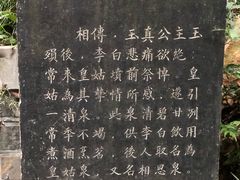 相傳，玉真公主玉
殞後，李白悲痛欲絕。
常來皇姑墳前祭悼，皇
姑為其摯情所感，遂引
一清泉，此泉清碧甘冽
常季不竭，供李白飲用
煮酒烹茗，後人取名為
皇姑泉，又名相思泉。